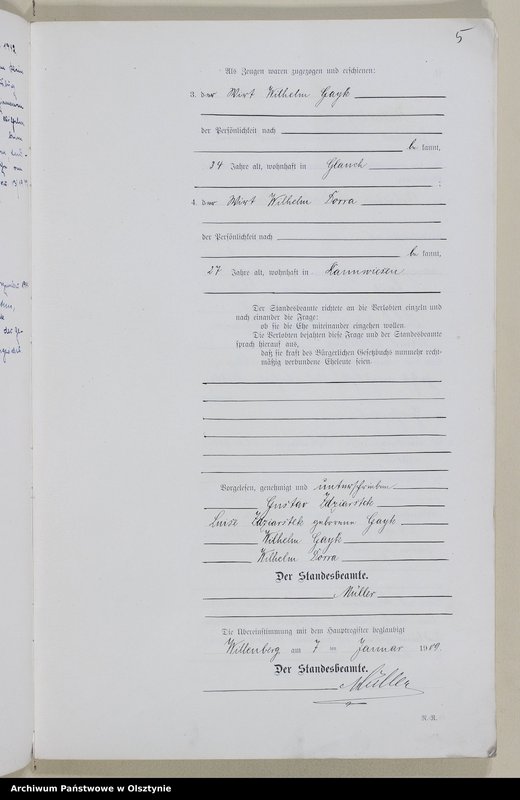 5
Als Zeugen waren zugezogen und erschienen:
3. der Wirt Wilhelm Gayk
der Persönlichkeit nach
be kannt,
34 Jahre alt, wohnhaft in Glauch
;
4. der Wirt Wilhelm Dorra
der Persönlichkeit nach
be kannt,
27 Jahre alt, wohnhaft in Kannwiesen
Der Standesbeamte richtete an die Verlobten einzeln und
nach einander die Frage:
ob sie die Ehe miteinander eingehen wollen.
Die Verlobten bejahten diese Frage und der Standesbeamte
sprach hierauf aus,
daß sie kraft des Bürgerlichen Gesetzbuchs nunmehr recht-
mäßig verbundene Eheleute seien.
Vorgelesen, genehmigt und unterschrieben
Gustav Idziarstek
Luise Idziarstek geborene Gayk
Wilhelm Gayk
Wilhelm Dorra
Der Standesbeamte.
Müller
Die Übereinstimmung mit dem Hauptregister beglaubigt
Willenberg am 7 ten Januar 1909.
Der Standesbeamte.
Müller
N.-R.
Archiwum Państwowe w Olsztynie